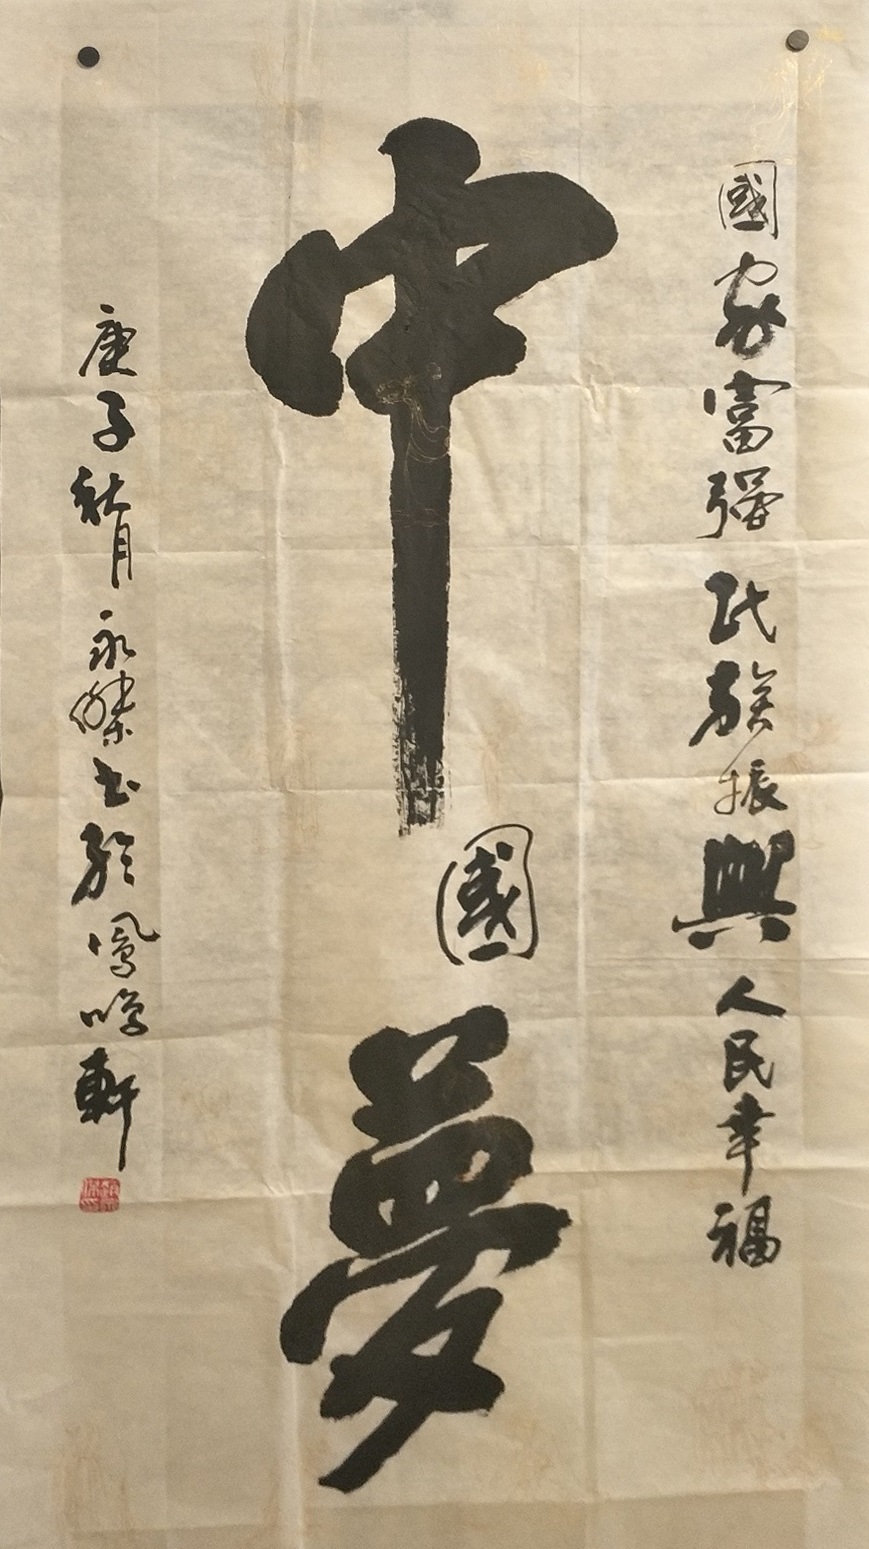 國家富强民族振興人民幸福
中國夢
庚子秋月永傑書於鳳鳴軒